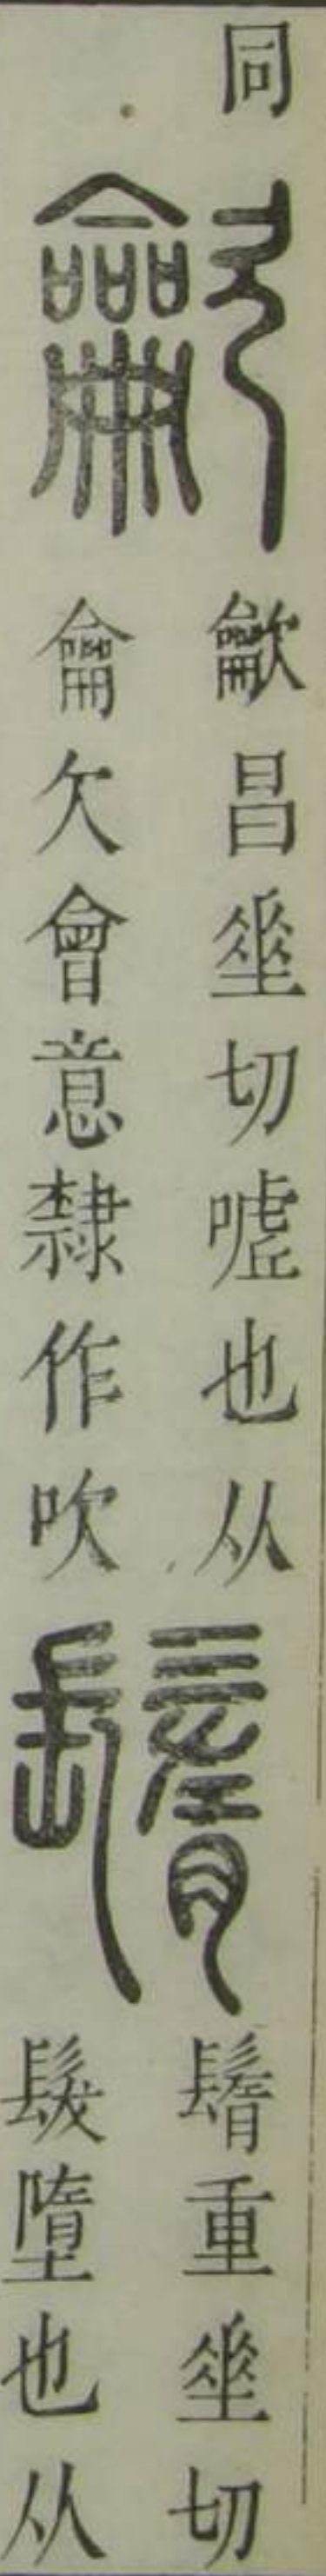 同
龡
龡昌垂切嘘也从
龠欠會意隸作吹
鬌
鬌重垂切
髮墮也从